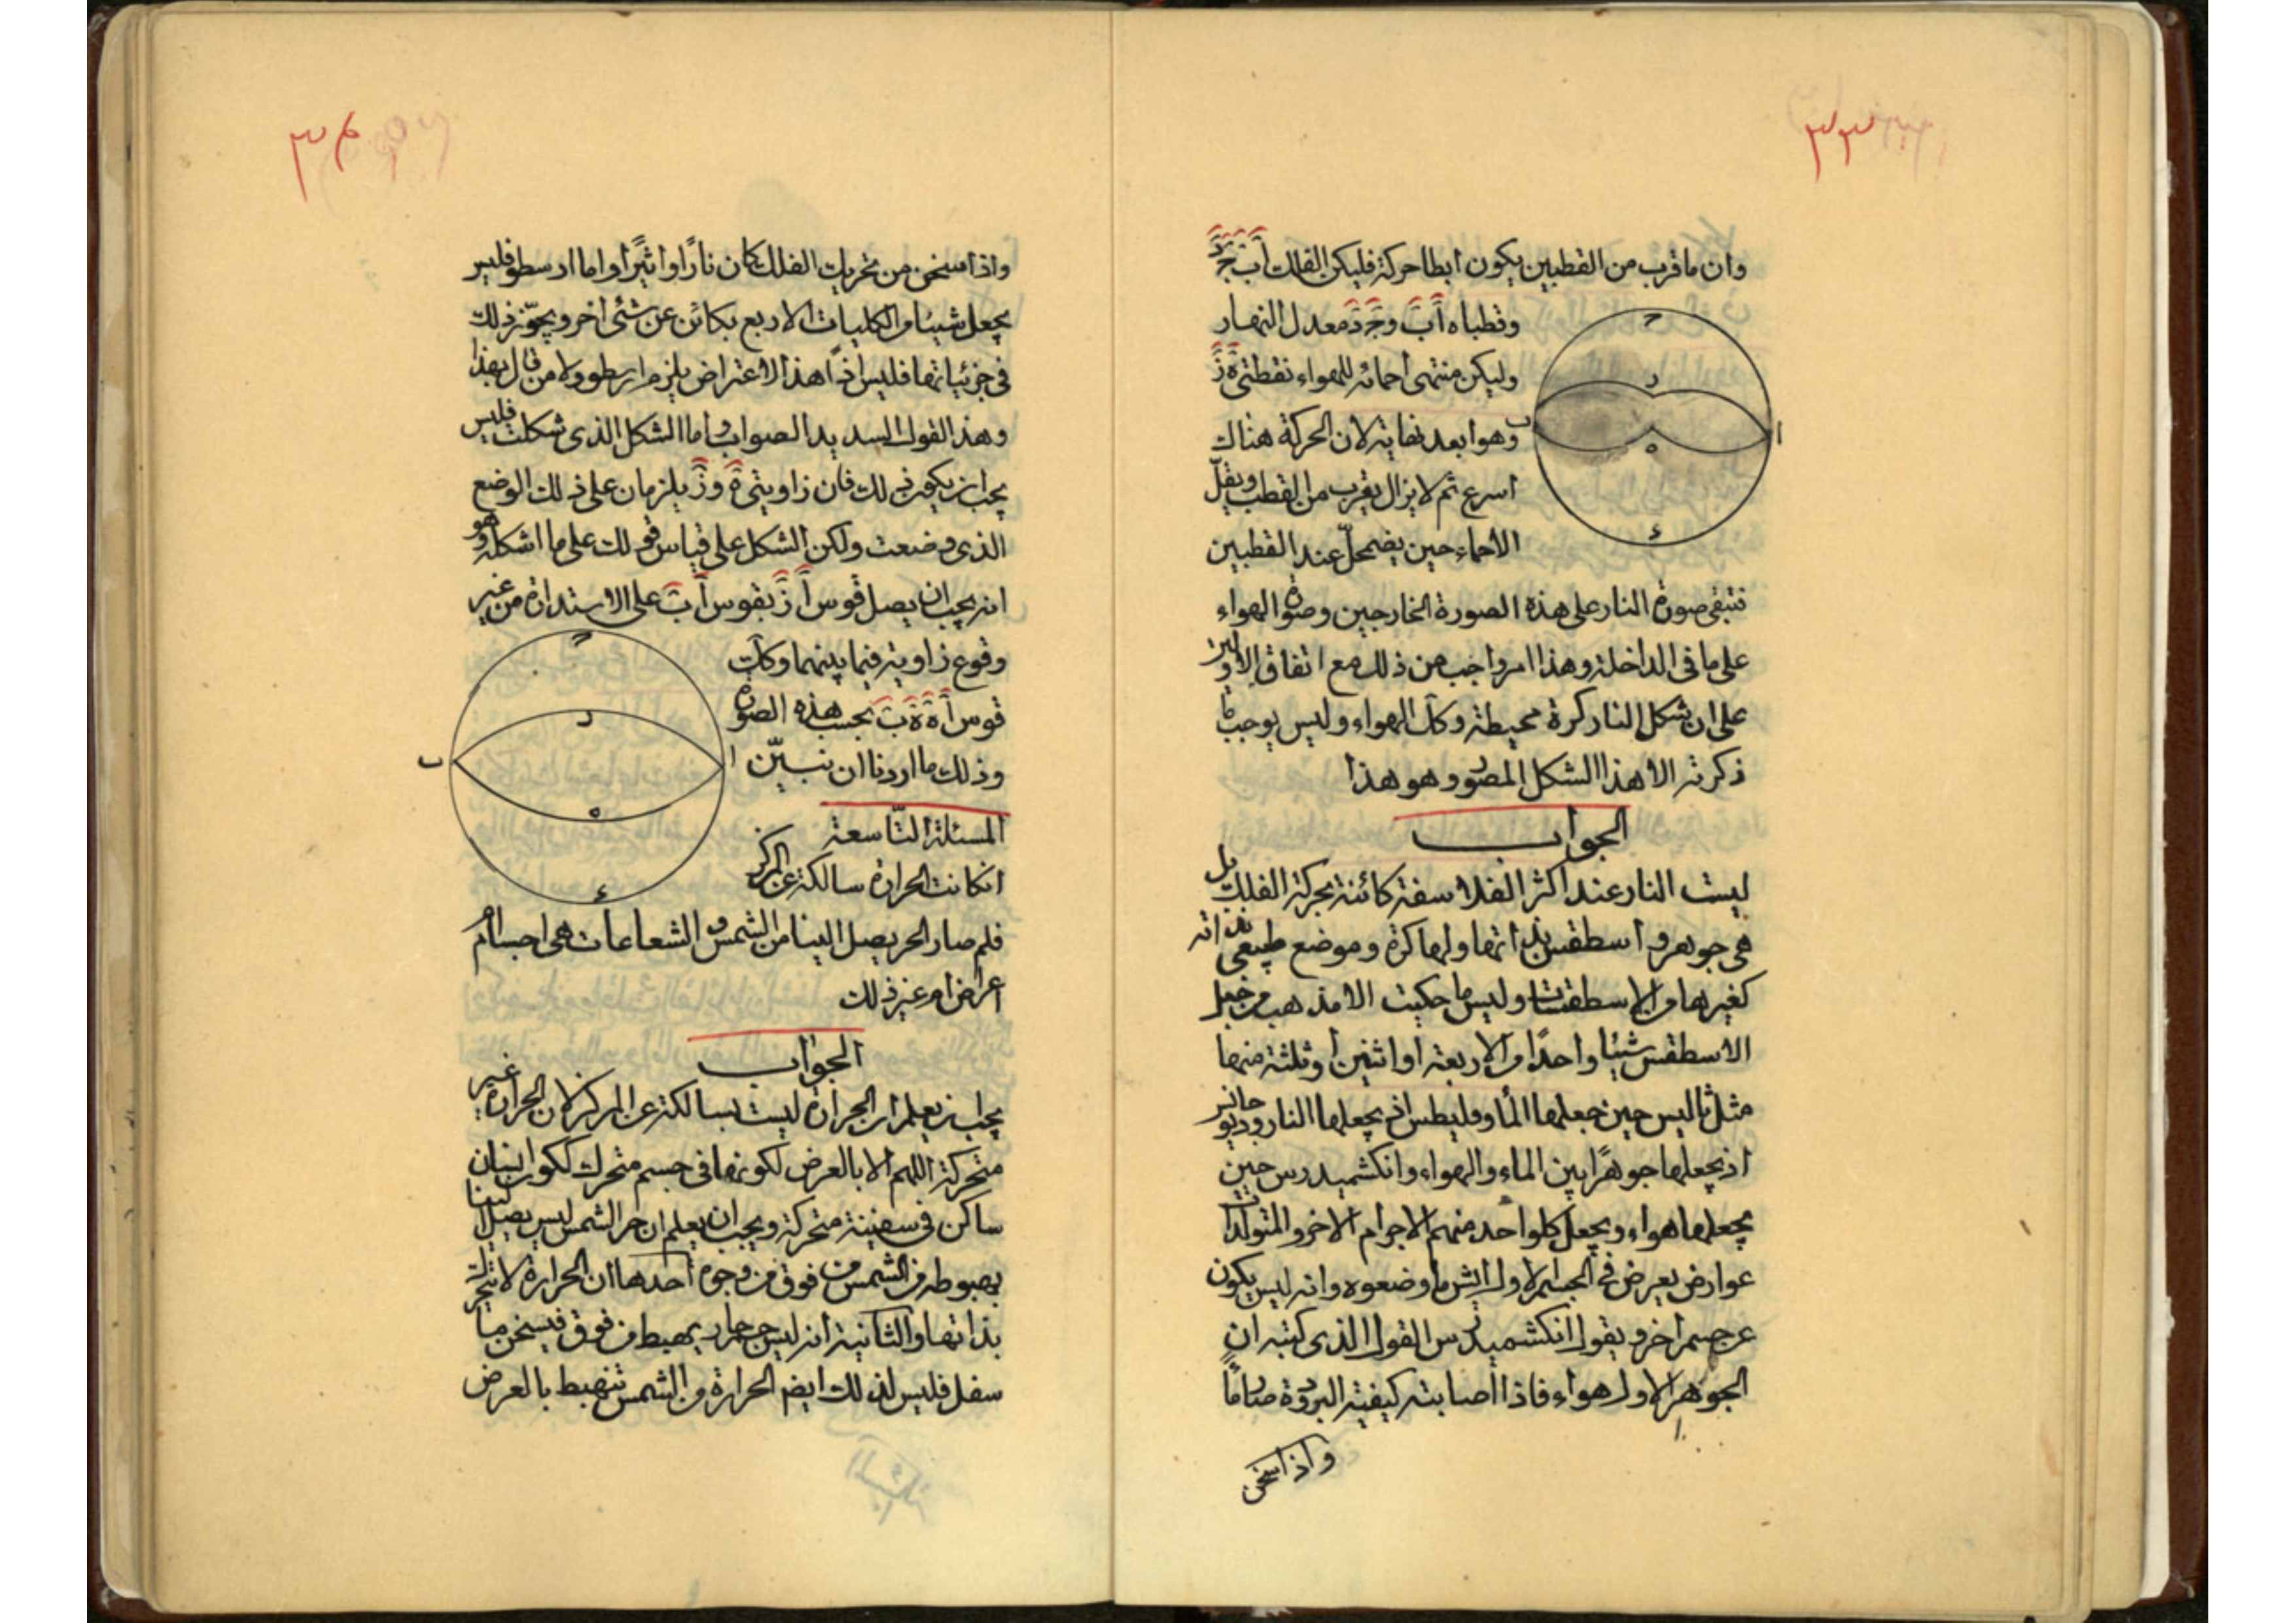 ٣٣
وان ما قرب من القطبين يكون ابطا حركة فليكن الفلك اَ بَ جَ دَ
وقطباه اَ بَ وجَ دَ معدل النهار
وليكن منتهى احمائه للهواء نقطتى هَ زَ
وهو ابعد نهايته لان الحركة هناك
اسرع ثم لا يزال يقرب من القطب ويقلّ
الاحماء حين يضمحلّ عند القطبين
فتبقى صورة النار على هذه الصورة الخارجين وصورة الهواء
على ما فى الداخلة وهذا امر واجب من ذلك مع اتفاق الاولين
على ان شكل النار كرة محيطة وكك الهواء وليس يوجب ما
ذكرته الا هذا الشكل المصور وهو هذا
ج
ر
ب
ا
ه
ء
الجواب
ليست النار عند اكثر الفلاسفة كائنة بحركة الفلك بل
هى جوهر و اسطقس بذاتها ولها كرة وموضع طبيعى بذاته
كغيرها من الاسطقسات وليس ما حكيت الا مذهب من جعل
الاسطقس شيئا واحدًا من الاربعة او اثنين او ثلثة منها
مثل ثاليس حين جعلها الماء وقليطس اذ يجعلها النار وديوجانس
اذ يجعلها جوهرًا بين الماء والهواء وانكشميدرس حين
يجعلها هواء ويجعل كل واحد منهم الاجرام الاخر والمتولدات
عوارض يعرض فى الجسم الاول ايش ما وضعوه وانه ليس يكون
عن جسم اخر ويقول انكشميدرس القول الذى كتبه ان
الجوهر الاول هواء فاذا اصابته كيفية البرودة صار ماءً
واذا سخن
٣٤
واذا سخن من تحريك الفلك كان نارًا او اثيرًا واما ارسطو فليس
يجعل شيئا من الكليات الاربع بكائن عن شئ اخر ويجوّز ذلك
فى جزئياتها فليس اذًا هذا الاعتراض يلزم ارسطو ولا من قال بهذا
وهذ القول السديد الصواب واما الشكل الذى شكلت فليس
يجب ان يكون ذلك فان زاويتى هَ و زَ يلزمان على ذلك الوضع
الذى وضعت ولكن الشكل على قياس قولك على ما اشكله وهو
انه يجب ان يصل قوس اَ زَ بقوس اَ بَ على الاستدارة من غير
وقوع زاوية فيما بينهما وكك
قوس اَ هَ هَ بَ بحسب هذه الصورة
وذلك ما اردنا ان نبيّن
ج
ر
ب
ا
ه
ء
المسئلة التّاسعة
ان كانت الحرارة سالكة عن المركز
فلم صار الحر يصل الينا من الشمس والشعاعات هى اجسام ام
اعراض ام غير ذلك
الجواب
يجب ان يعلم ان الحرارة ليست بسالكة عن المركز لان الحرارة غير
متحركة اللهم الا بالعرض لكونها فى جسم متحرك لكون انسان
ساكن فى سفينة متحركة ويجب ان يعلم ان حر الشمس ليس يصل الينا
بهبوطه من الشمس من فوق من وجوه احدها ان الحرارة لا تتحرك
بذاتها والثانية انه ليس جسم حار يهبط من فوق فيسخن ما
سفل فليس لذلك ايضا الحرارة من الشمس تنهبط بالعرض